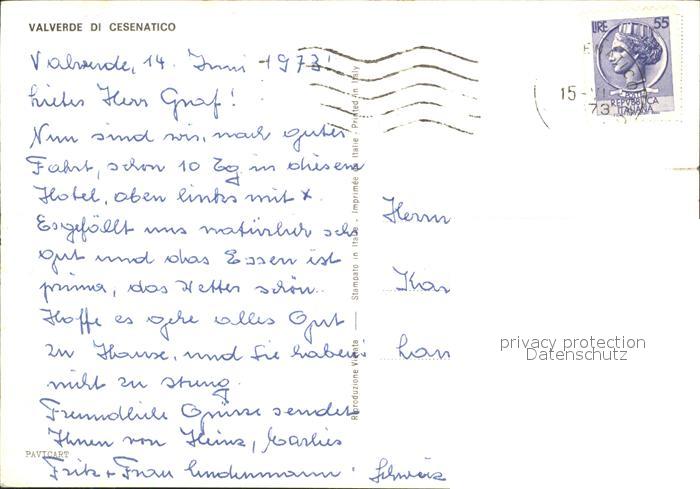 VALVERDE DI CESENATICO
Valverde, 14. Juni 1973!
Liebes Herr Graf!
Nun sind wir, nach guter
Fahrt, schon 10 Tg in diesem
Hotel, oben links mit x.
Es gefällt uns natürlich sehr
gut und das Essen ist
prima, das Wetter schön.
Hoffe es gehe alles Gut
zu Hause, und Sie haben
nicht zu streng.
Freundliche Grüsse sendet
Ihnen von Heinz, Marlies
Fritz + Frau Lindenmann.
PAVICART
Riproduzione Vietata — Stampato in Italia - Imprimée en Italie - Printed in Italy
LIRE 55
REPVBBLICA
ITALIANA
15-
73
Herrn
Kar
Lan
Schweiz
privacy protection
Datenschutz